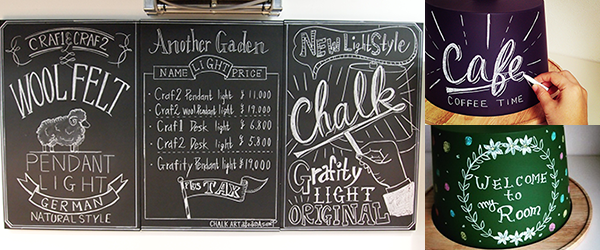 CRAFT&CRAF2
WOOL FELT
PENDANT
LIGHT
GERMAN
NATURAL STYLE
Another Gaden
NAME LIGHT PRICE
Craf2 Pendant light ¥ 11,000
Craf2 wool Pendant light ¥ 19,000
Craf1 Desk light ¥ 6,800
Craf2 Desk light ¥ 5,800
Grafity Pendant light ¥ 19,000
Plus TAX
CHALK ART
New Light Style
Chalk
Grafity
LIGHT
ORIGINAL
Cafe
COFFEE TIME
WELCOME
to
my
Room